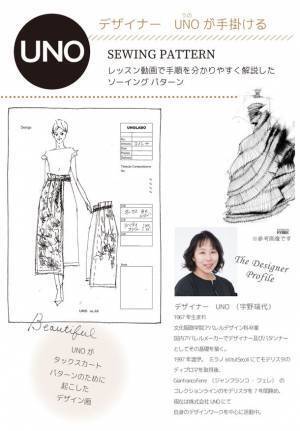 デザイナー UNOが手掛ける
うの
UNO
SEWING PATTERN
レッスン動画で手順を分かりやすく解説した
ソーイングパターン
Design
UNOLABO
※参考画像です
The Designer
Profile
Beautiful
UNOが
タックスカート
パターンのために
起こした
デザイン画
デザイナー UNO (宇野瑞代)
1967年生まれ
文化服飾学院アパレルデザイン科卒業
国内アパレルメーカーでデザイナー及びパタンナー
としてその基礎を築く。
1997年渡伊。ミラノ
にてモデリスタの
ディプロマを取得後、
Gianfranco Ferre (ジャンフランコ・フェレ) の
コレクションラインのモデリスタを7年間務め、
現在は株式会社UNOにて
自身のデザインワークを中心に活動中。